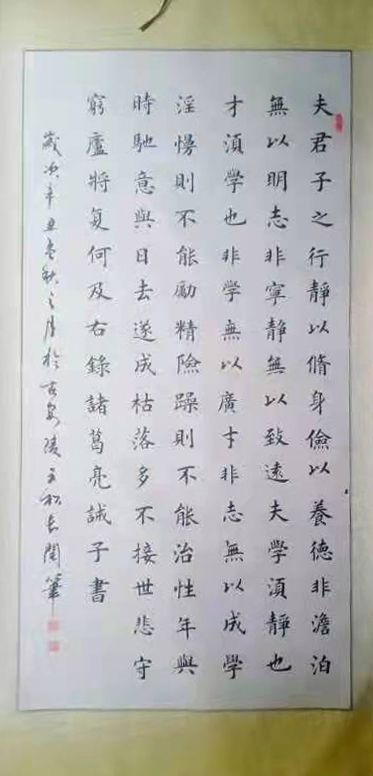 夫君子之行靜以脩身儉以養德非澹泊
無以明志非寧靜無以致遠夫學須靜也
才須學也非學無以廣才非志無以成學
淫慢則不能勵精險躁則不能治性年與
時馳意與日去遂成枯落多不接世悲守
窮廬將复何及右錄諸葛亮誡子書
歲次辛丑春秋之月於古安陵王松長閏筆